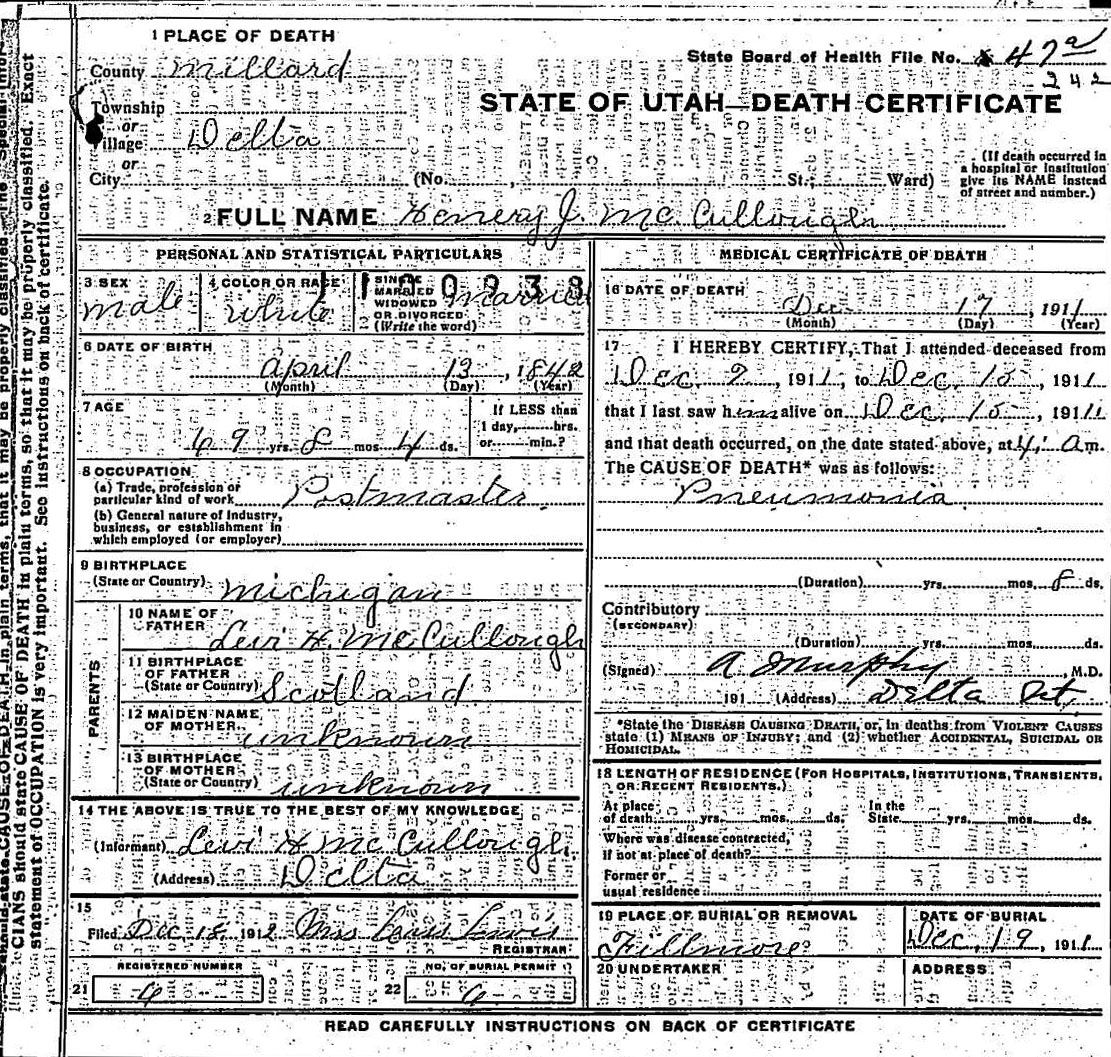 1 PLACE OF DEATH
County Millard
State Board of Health File No. 47a
242
STATE OF UTAH—DEATH CERTIFICATE
Township
or
Village Delta
or
City (No. , St.; Ward)
(If death occurred in
a hospital or institution
give its NAME instead
of street and number.)
2 FULL NAME Hemery J. McCullough
PERSONAL AND STATISTICAL PARTICULARS
3 SEX
male
4 COLOR OR RACE
White
5 SINGLE
MARRIED
WIDOWED
OR DIVORCED
(Write the word)
Married
6 DATE OF BIRTH
April 13, 1842
(Month) (Day) (Year)
7 AGE
69 yrs. 8 mos. 4 ds.
If LESS than
1 day, hrs.
or min.?
8 OCCUPATION
(a) Trade, profession or
particular kind of work Postmaster
(b) General nature of industry,
business, or establishment in
which employed (or employer)
9 BIRTHPLACE
(State or Country) Michigan
PARENTS
10 NAME OF
FATHER
Levi H. McCullough
11 BIRTHPLACE
OF FATHER
(State or Country) Scotland
12 MAIDEN NAME
OF MOTHER
unknown
13 BIRTHPLACE
OF MOTHER
(State or Country) unknown
14 THE ABOVE IS TRUE TO THE BEST OF MY KNOWLEDGE
(Informant) Levi H McCullough
(Address) Delta
15
Filed Dec 18 1912 Mrs Lewis
REGISTRAR
REGISTERED NUMBER
21 6
NO. OF BURIAL PERMIT
22 6
MEDICAL CERTIFICATE OF DEATH
16 DATE OF DEATH
Dec 17, 1911
(Month) (Day) (Year)
17 I HEREBY CERTIFY, That I attended deceased from
Dec. 9, 1911, to Dec. 15, 1911
that I last saw him alive on Dec. 15, 1911
and that death occurred, on the date stated above, at 4: am.
The CAUSE OF DEATH* was as follows:
Pneumonia
(Duration) yrs. mos. 8 ds.
Contributory
(SECONDARY)
(Duration) yrs. mos. ds.
(Signed) A Murphy, M.D.
191 (Address) Delta Ut,
*State the DISEASE CAUSING DEATH, or, in deaths from VIOLENT CAUSES
state (1) MEANS OF INJURY; and (2) whether ACCIDENTAL, SUICIDAL OR
HOMICIDAL.
18 LENGTH OF RESIDENCE (FOR HOSPITALS, INSTITUTIONS, TRANSIENTS,
OR RECENT RESIDENTS.)
At place
of death yrs. mos. ds.
In the
State yrs. mos. ds.
Where was disease contracted,
if not at place of death?
Former or
usual residence
19 PLACE OF BURIAL OR REMOVAL
Fillmore
DATE OF BURIAL
Dec. 19, 1911
20 UNDERTAKER
ADDRESS
READ CAREFULLY INSTRUCTIONS ON BACK OF CERTIFICATE
CIANS should state CAUSE OF DEATH in plain terms, so that it may be properly classified. Exact
statement of OCCUPATION is very important. See instructions on back of certificate.